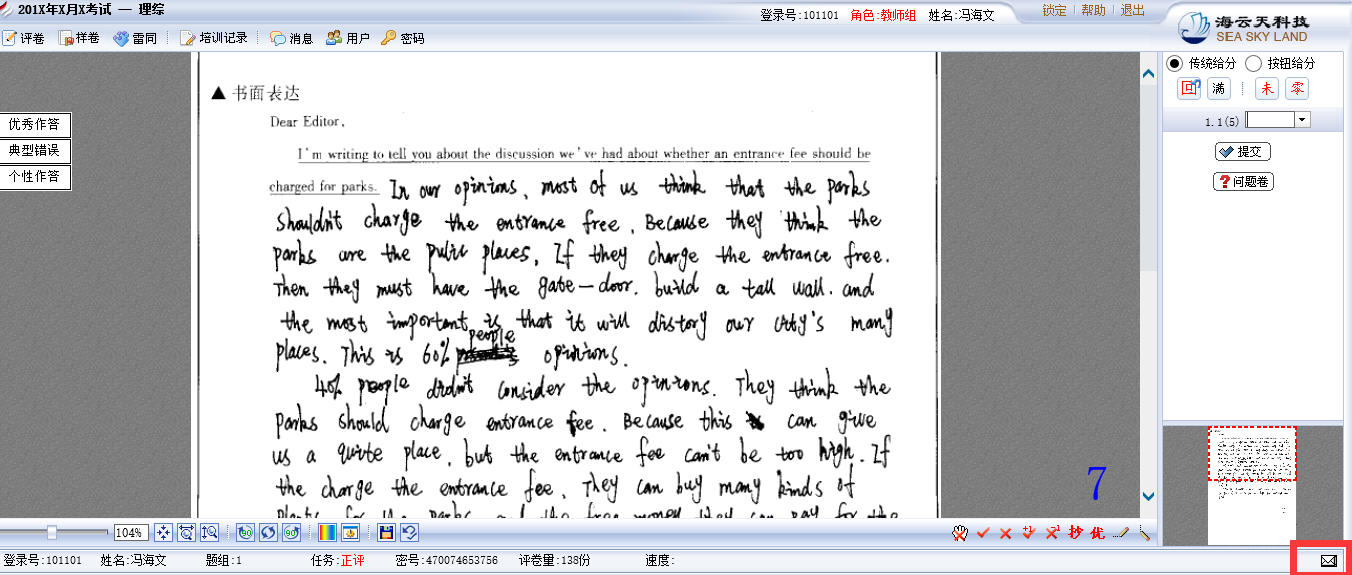 201X年X月X考试 — 理综
登录号:101101 角色:教师组 姓名:冯海文
锁定 帮助 退出
海云天科技
SEA SKY LAND
评卷 样卷 雷同 培训记录 消息 用户 密码
传统给分 按钮给分
回 满 未 零
1.1(5)
提交
问题卷
优秀作答
典型错误
个性作答
▲ 书面表达
Dear Editor,
I'm writing to tell you about the discussion we've had about whether an entrance fee should be
charged for parks. In our opinions, most of us think that the parks
shouldn't charge the entrance free. Because they think the
parks are the pulic places, If they charge the entrance free.
Then they must have the gate-door. build a tall wall. and
the most important is that it will distory our city's many
places. This is 60% people opinions.
40% people didn't consider the opinions. They think the
parks should charge entrance fee. Because this can give
us a quite place, but the entrance fee can't be too high. If
the charge the entrance fee, They can buy many kinds of
plants for the parks and the free money they can pay for the
7
104%
90 90
+1 -1 抄 优
登录号:101101 姓名:冯海文 题组:1 任务:正评 密号:470074653756 评卷量:138份 速度: